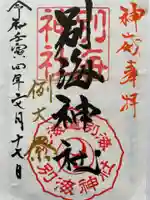 神威奉拝
別海神社
例大祭
令和壬寅四年六月十九日
別海神社
別海神社